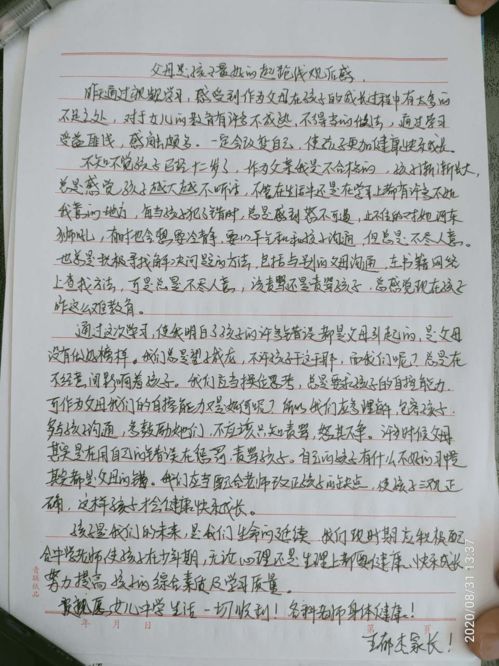 父母是孩子最好的起跑线观后感
昨天通过视频学习,感受到作为父母在孩子的成长过程中有太多的
不足之处,对于女儿的教育有许多不成熟、不得当的做法,通过学习
受益匪浅,感触颇多。一定会改其自己,使孩子更加健康快乐成长。
不知不觉孩子已经十二岁了,作为父亲我是不合格的,孩子渐渐长大,
总是感觉孩子越大越不听话,不管在生活中还是在学习上都有许多不如
我意的地方,每当孩子犯了错时,总是感到怒不可遏,止不住的对她河东
狮吼,有时也会想要冷静,要心平气和和孩子沟通,但总是不尽人意。
也总是积极寻找解决问题的方法,包括与别的父母沟通,在书籍网络
上查找方法,可是总是不尽人意,该责骂还是责骂孩子,总感觉现在孩子
咋这么难教育。
通过这次学习,使我明白了孩子的许多错误都是父母引起的,是父母
没有做好榜样。我们总是望子成龙,不许孩子干这干那,而我们呢?总是在
不经意间影响着孩子。我们应当换位思考,总是要求孩子的自控能力,
可作为父母我们的自控能力又是如何呢?所以我们应多理解,包容孩子,
多与孩子沟通,多鼓励她们,不应该只知责骂,怒其不争。许多时候父母
其实是在用自己的错误在惩罚、责骂孩子。自己的孩子有什么不好的习惯
其实都是父母的错。我们应当配合老师改正孩子的缺点,使孩子三观正
确,这样孩子才会健康快乐成长。
孩子是我们的未来,是我们生命的延续,我们现时期应积极配
合中学老师,使孩子在少年期,无论心理还是生理上都要健康、快乐成长,
努力提高孩子的综合素质及学习质量。
祝愿女儿中学生活一切顺利!各科老师身体健康!
年 月 日 第 页
家长!
2020/08/31 13:37